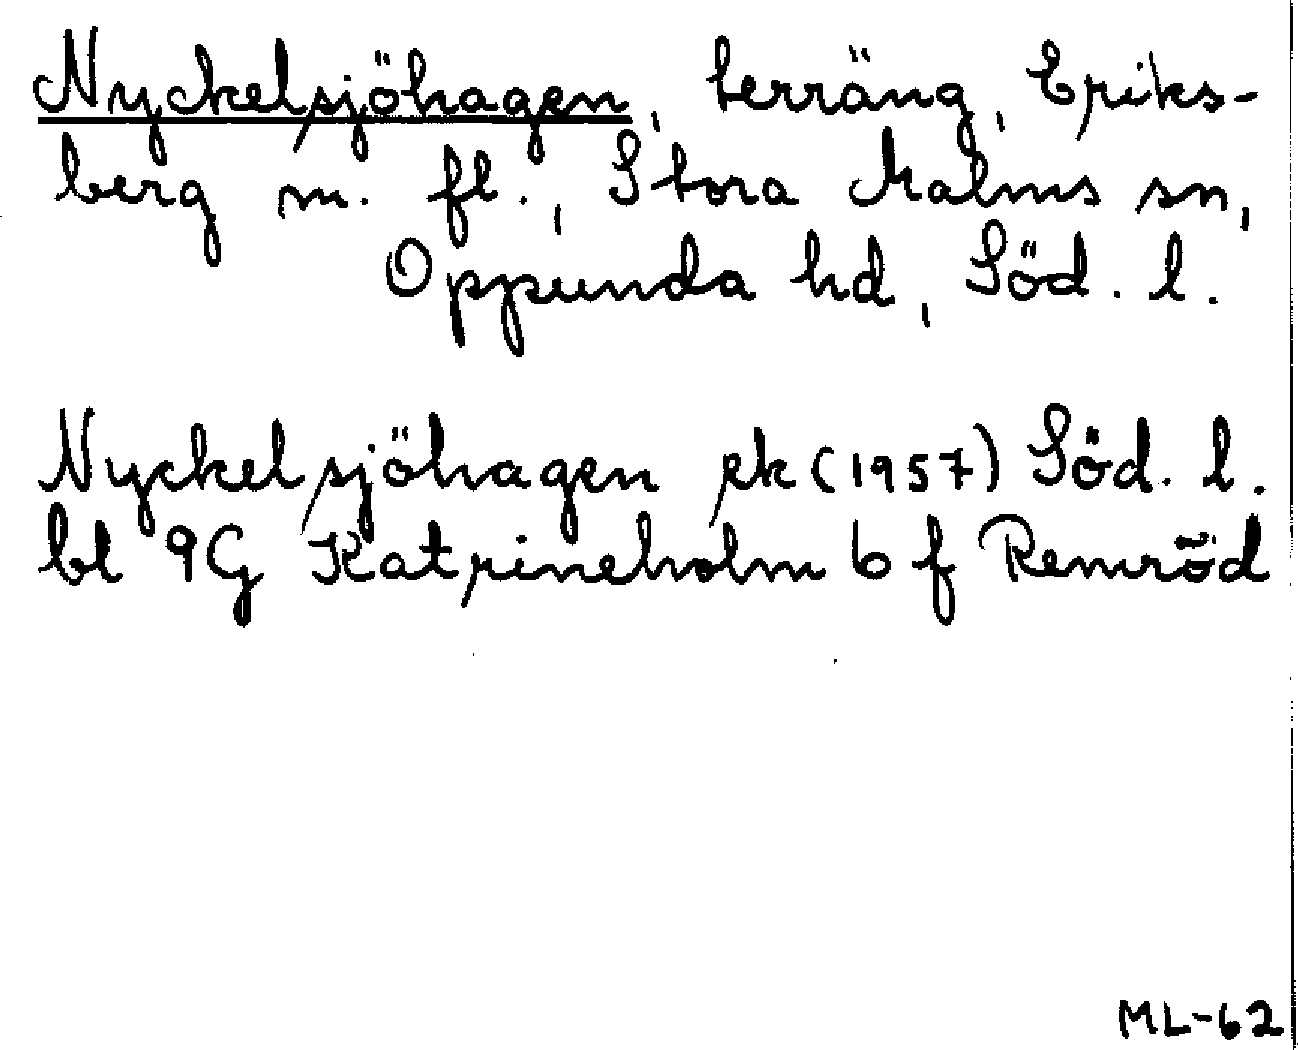 Nyckelsjöhagen, terräng, Eriks-
berg m. fl., Stora Malms sn,
Oppunda hd, Söd. l.
Nyckelsjöhagen ek (1957) Söd. l.
bl 9G Katrineholm 6 f Remröd
ML-62